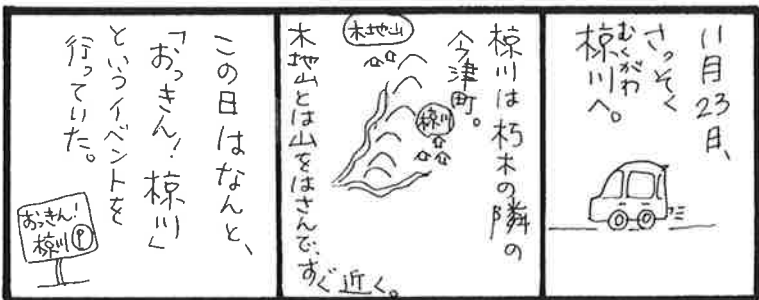 11月23日、
さっそく
椋川へ。
むくがわ
椋川は朽木の隣の
今津町。
木地山
椋川
木地山とは山をはさんで、すぐ近く。
この日はなんと、
「おっきん!椋川」
というイベントを
行っていた。
おっきん!
椋川 P